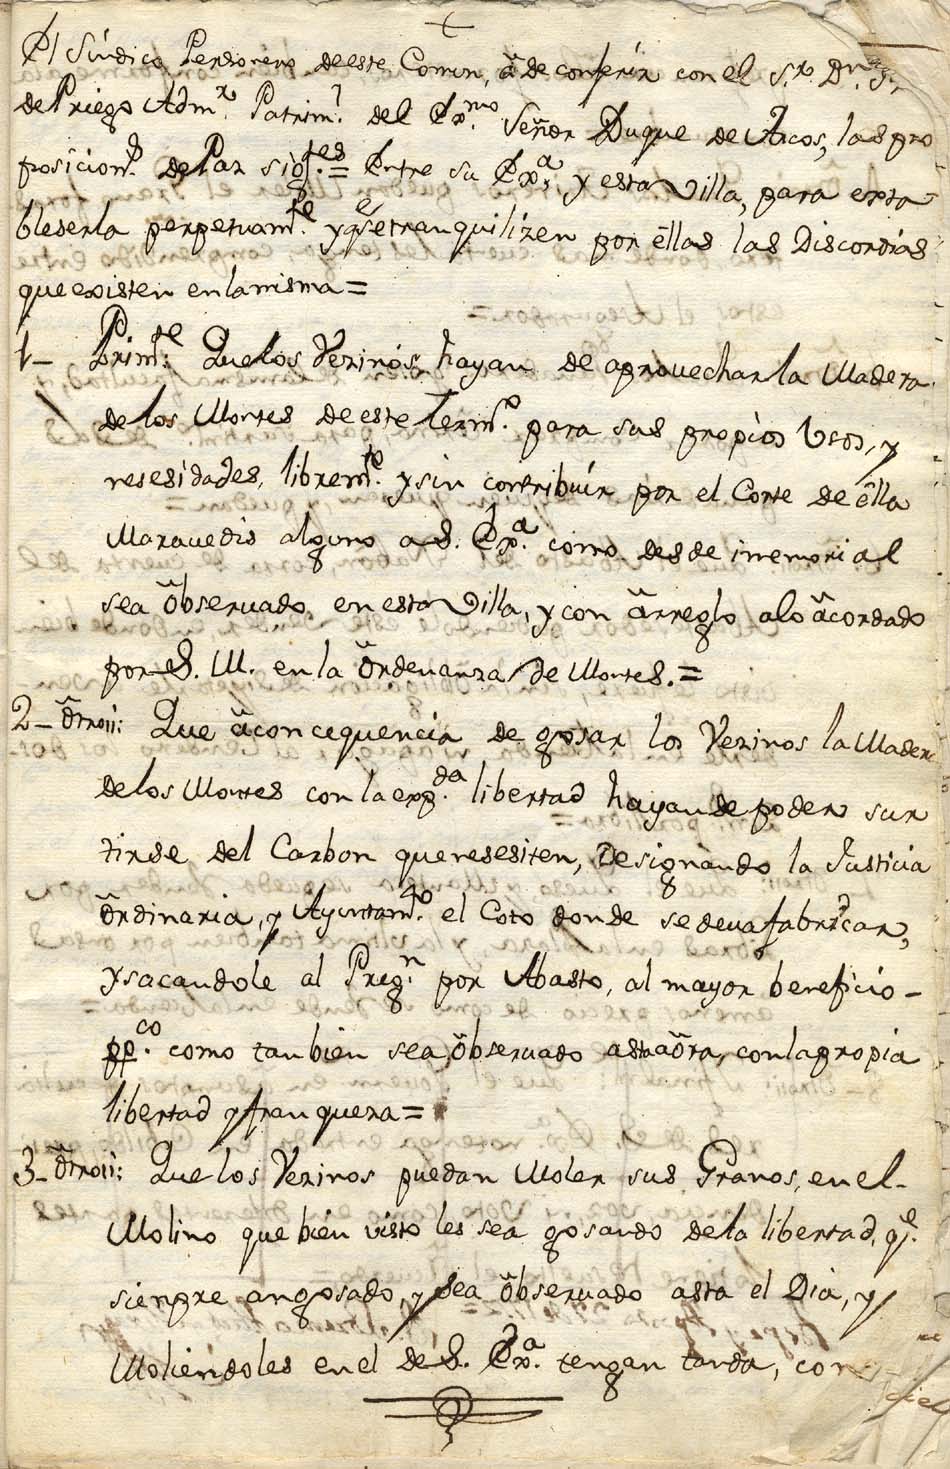 El Síndico Personero de este Comun, â de conferir con el S.r Dn.
de Priego Adm.r Patrim.l del Ex.mo Señor Duque de Arcos, las pro
posicion.s de Paz sig.tes = Entre su Ex.a, y esta villa, para exta
bleserla perpetuam.te y q.e se tranquilizen por êllas las Discordias
que existen en la misma =
1- Prim.te Que los Vezinos hayan de aprovechar la Madera
de los Montes de este Term.o para sus propios Usos, y
nesesidades, librem.te y sin contribuir por el Corte de êlla
Maravedis alguno a S. Ex.a como desde inmemorial
sea ôbservado en esta Villa, y con ârreglo alo âcordado
por S. M. en la Ôrdenanza de Montes. =
2- Ôtroii: Que âconcequencia de gosar los Vezinos la Madera
de los Montes con la exp.da libertad hayan de poder sur
tirse del Carbon que nesesiten, Designando la Justicia
Ôrdinaria, y Ayuntam.to el Coto donde se deva fabricar,
y sacandole al Preg.n por Abasto, al mayor beneficio-
pp.co como tanbien sea ôbservado asta aôra, con la propia
libertad y franqueza =
3- Ôtroii: Que los Vezinos puedan Moler sus Granos, en el-
Molino que bien visto les sea gosando de la libertad, q.e
siempre an gosado, y sea ôbservado asta el Dia, y
Moliendoles en el de S. Ex.a tengan tanda, con